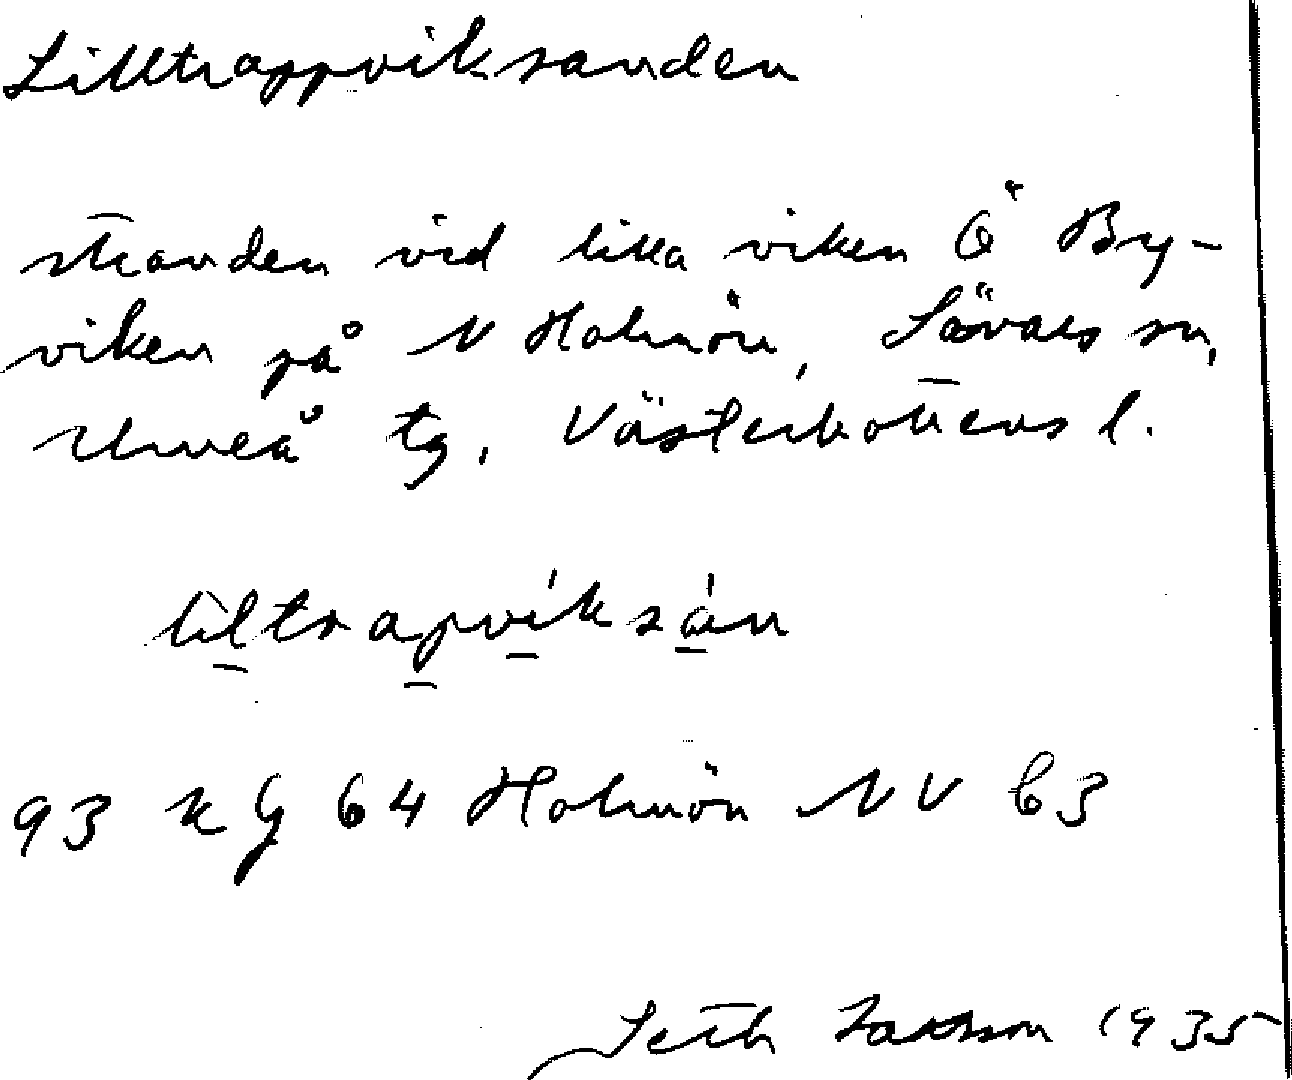 Lilltrappviksanden
stranden vid lilla viken Ö By-
viken på N Holmön, Sävars sn,
Umeå tg, Västerbottens l.
liltrapviksán
93 K g 64 Holmön NV 63
Seth 1935